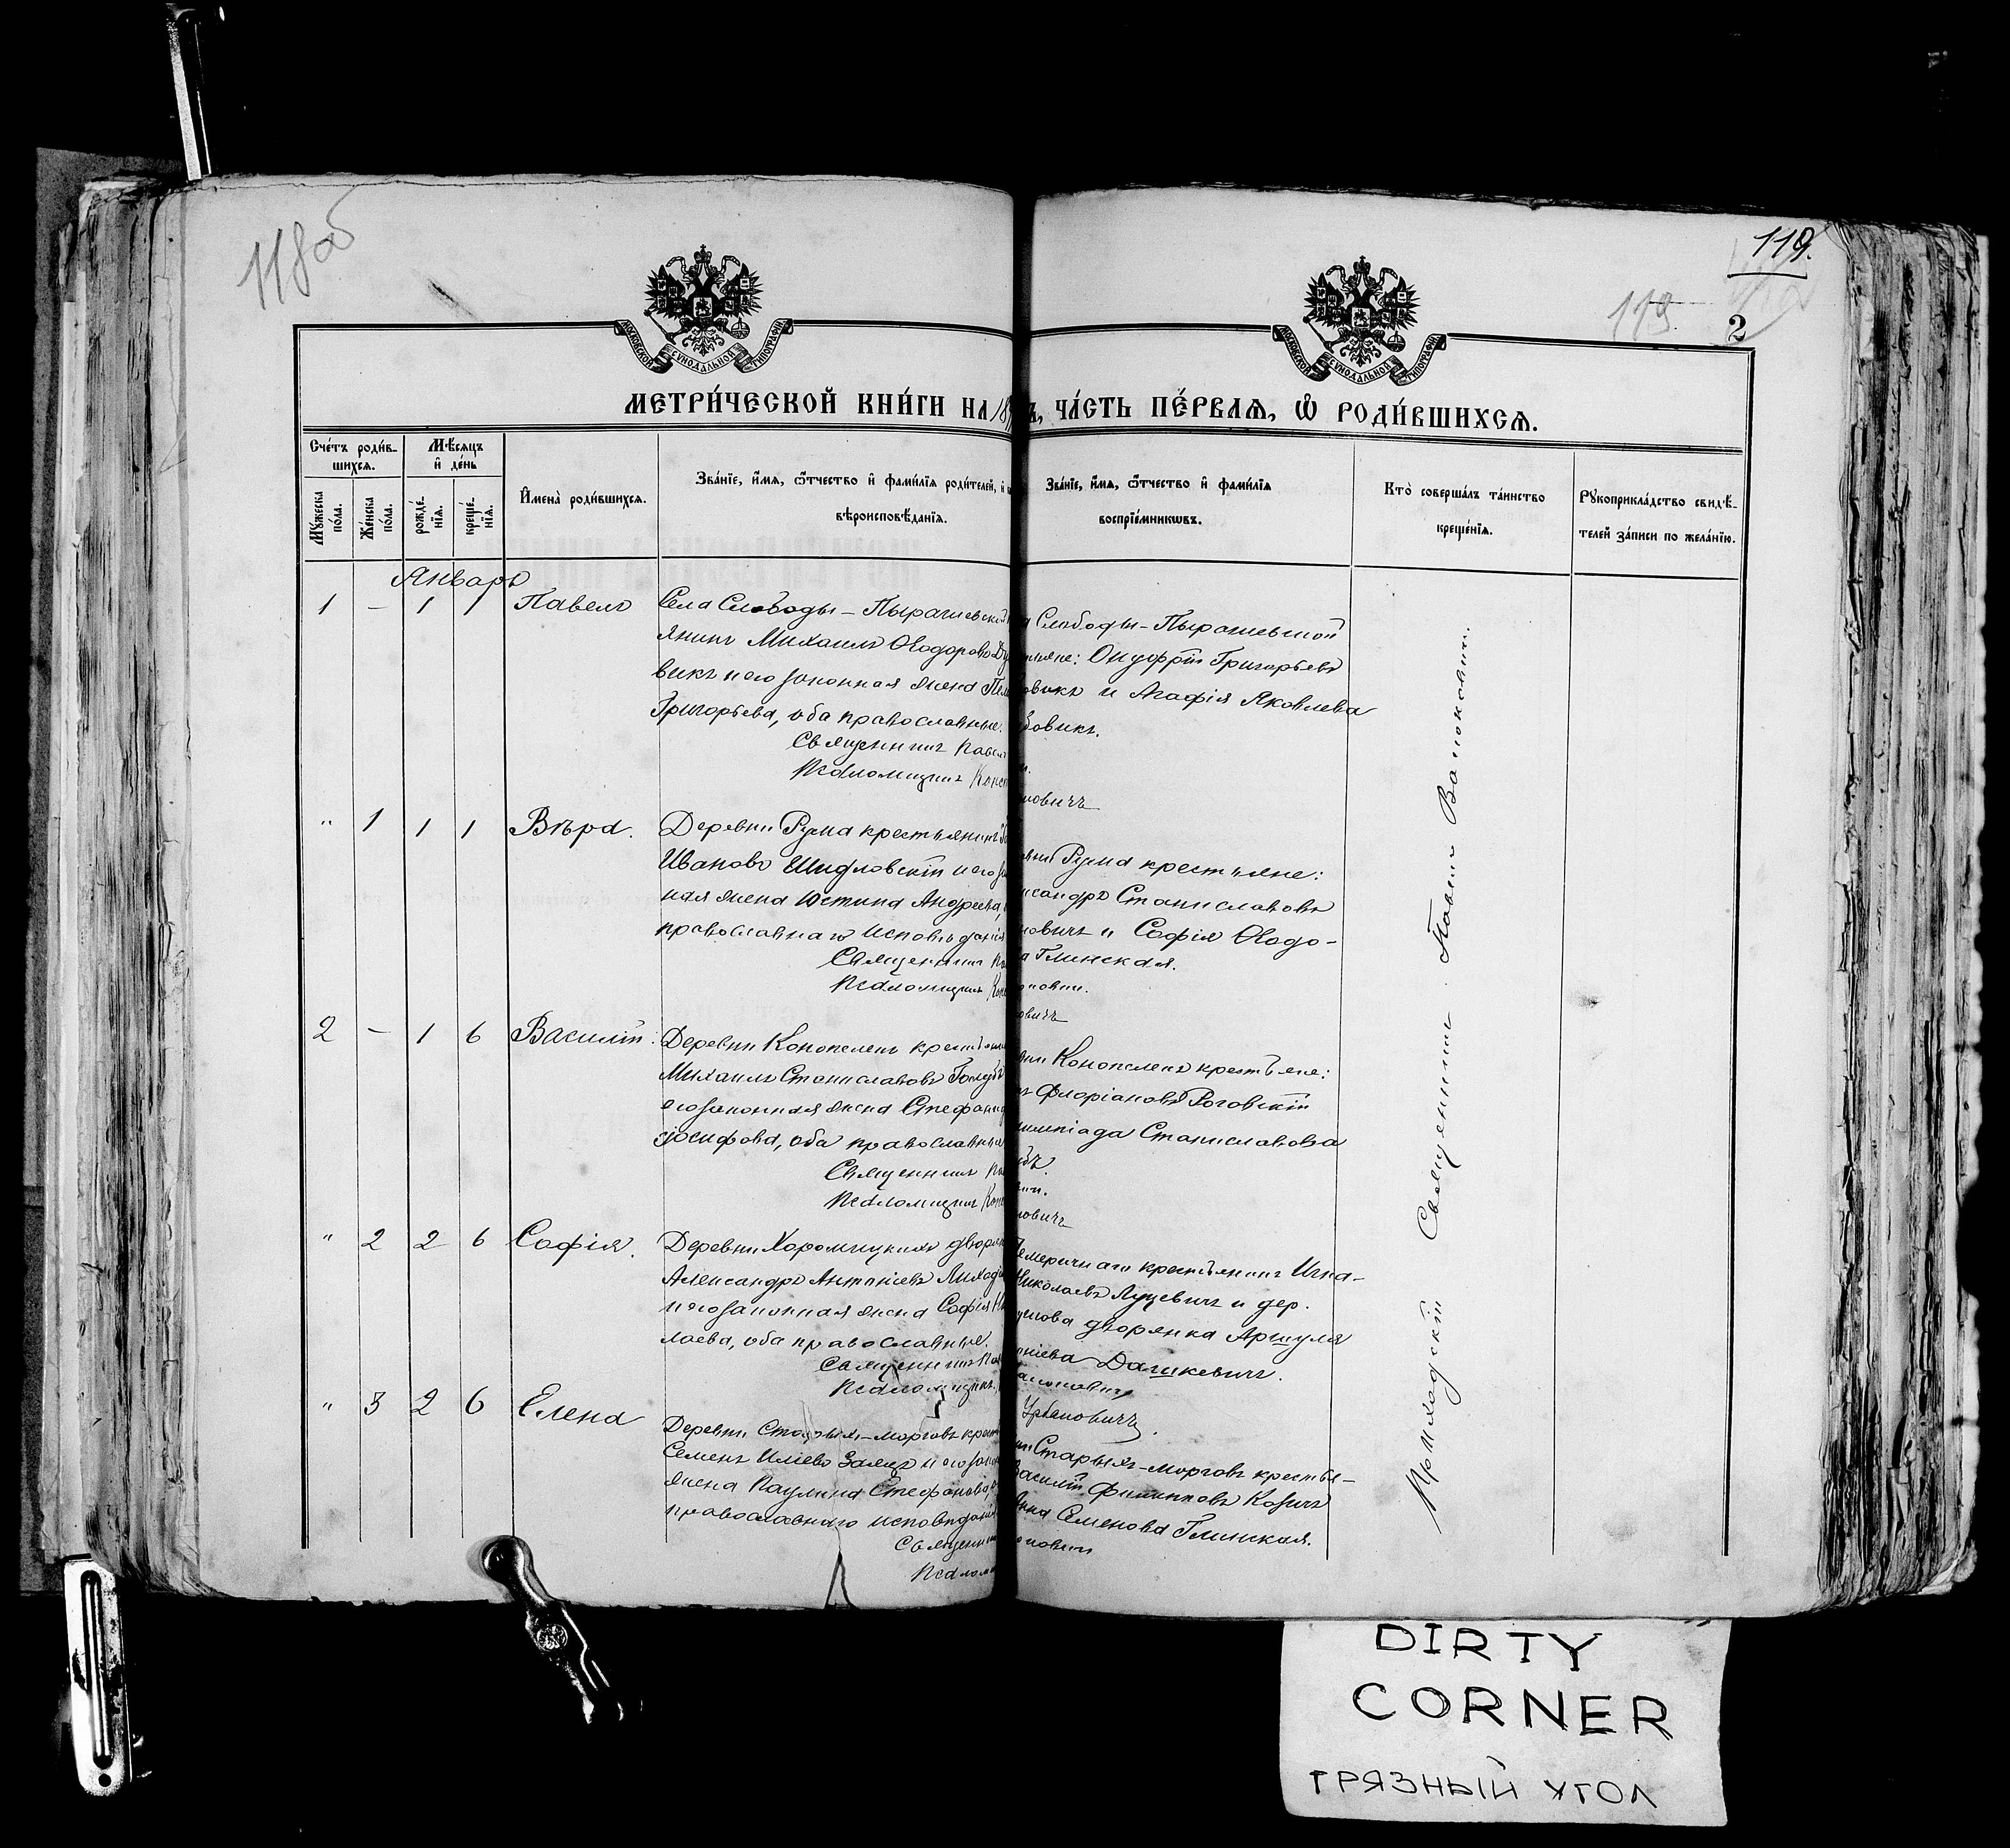 118об
119.
119
2
МОСКОВСКОЙ СѴНОДАЛЬНОЙ ТИПОГРАФІИ
МОСКОВСКОЙ СѴНОДАЛЬНОЙ ТИПОГРАФІИ
МЕТРИ́ЧЕСКОЙ КНИ́ГИ НА 18
Ъ, ЧА́СТЬ ПЕ́РВАѦ, Ѡ҆ РОДИ́ВШИХСѦ.
Сче́тъ роди́в-
шихсѧ.
Мꙋ́жеска по́ла.
Же́нска по́ла.
Мѣ́сѧцъ
и҆ де́нь
рожде́-нїѧ.
креще́-нїѧ.
И҆мена̀ роди́вшихсѧ.
Зва́нїе, и҆́мѧ, ѻ҆́тчество и҆ фами́лїѧ роди́телей, и҆
вѣроисповѣ́данїѧ.
Зва́нїе, и҆́мѧ, ѻ҆́тчество и҆ фами́лїѧ
воспрїе́мникѡвъ.
Кто̀ соверша́лъ та́инство
креще́нїѧ.
Рꙋкоприкла́дство свидѣ́-
телей за́писи по жела́нїю.
Январь
1 – 1 1 Павелъ
Села Слободы-Пырашевской
янинъ Михаилъ Ѳеодоровъ Ду
викъ и его законная жена Пел
Григорьева, оба православные.
Священникъ Павелъ
Псаломщикъ Конст
а Слободы-Пырашевской
тьяне: Онуфрій Григорьевъ
бовикъ и Агафія Яковлева
бовикъ.
новичъ
" 1 1 1 Вѣра.
Деревни Рума крестьянинъ
Ивановъ Шидловскій и его за
ная жена Юстина Андреева,
православнаго исповѣданія
Священникъ Па
Псаломщикъ Конс
вни Рума крестьяне:
ксандръ Станиславовъ
новичъ и София Ѳеодо-
а Глинская.
оковичъ.
овичъ
2 – 1 6 Василій.
Деревни Конопелекъ крестьянин
Михаилъ Станиславовъ Голубъ
его законная жена Стефанид
Іосифова, оба православные
Священникъ Па
Псаломщикъ Конс
вни Конопелекъ крестьяне:
ъ Флоріановъ Роговскій
импіада Станиславова
убъ.
новичъ
" 2 2 6 Софія.
Деревни Хоромицкихъ дворян
Александръ Антоніевъ Лиход
и его законная жена Софія Ни
лаева, оба православные.
Священникъ Пав
Псаломщикъ
Темеричнаго крестьянинъ Игна-
Николаевъ Луцевичъ и дер.
умова дворянка Аршуля
оніева Дашкевичъ.
апоковичъ
Урбановичъ.
" 3 2 6 Елена
Деревни Старыхъ-Морговъ крест
Семенъ Иліевъ Заяцъ и его закон
жена Паулина Стефанова,
православнаго исповѣданія
Священник
Псалом
ни Старыхъ-Морговъ крестья-
Василій Филипповъ Козичъ
Анна Семенова Глинская.
оковичъ
Приходскій Священникъ Павелъ Вапоковичъ.
DIRTY
CORNER
ГРЯЗНЫЙ УГОЛ